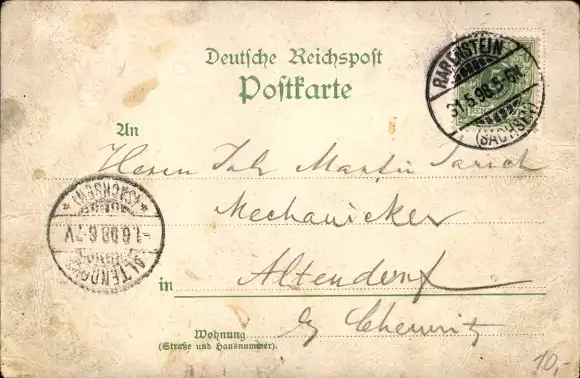 Deutsche Reichspost
Postkarte
RABENSTEIN
31.5.98.8-9N.
(SACHSEN)
An
Herrn Joh Martin
Mechanicker
ALTENDORF
(SACHSEN)
-1.6.98.6-7V
in Altendorf
b/ Chemnitz
Wohnung
(Straße und Hausnummer).
10,-